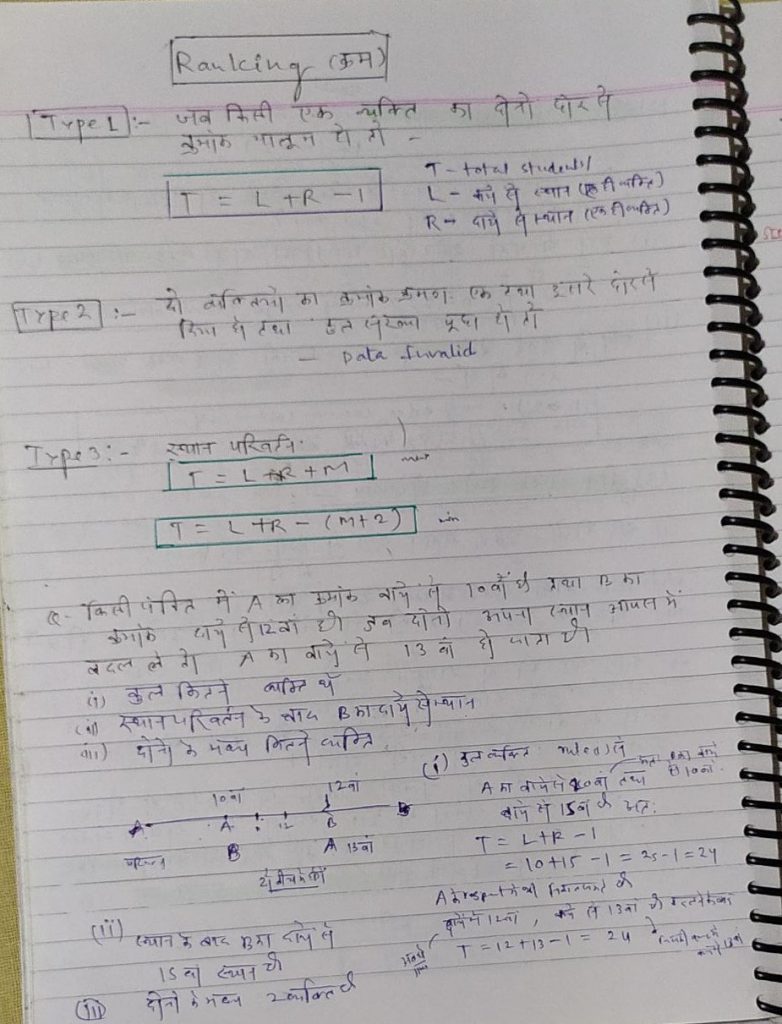 Ranking (क्रम)
Type 1 :- जब किसी एक व्यक्ति का दोनो छोर से
क्रमांक मालूम हो तो -
T = L + R - 1
T - total students
L - बायें से स्थान (एक ही व्यक्ति)
R - दायें से स्थान (एक ही व्यक्ति)
Type 2 :- दो व्यक्तियों का क्रमांक क्रमशः एक तथा दूसरे छोर से
दिया हो तथा कुल संख्या पूछा हो तो
- Data Invalid
Type 3 :- स्थान परिवर्तन
T = L + R + M
T = L + R - (M+2) min
Q - किसी पंक्ति में A का क्रमांक बायें से 10वाँ है तथा B का
क्रमांक दायें से 12वां है जब दोनो अपना स्थान आपस में
बदल ले तो A का बायें से 13 वां हो जाता है
(i) कुल कितने व्यक्ति थे
(ii) स्थान परिवर्तन के बाद B का दायें से स्थान
(iii) दोनो के मध्य कितने व्यक्ति
10वां 12वां
A A 12 B B
B A 13वां
(i) कुल व्यक्ति
A का बायें से 10वां तथा
15वां है अतः
T = L + R - 1
= 10 + 15 - 1 = 25 - 1 = 24
12वां, 13वां
T = 12 + 13 - 1 = 24
(ii) स्थान के बाद B का दायें से
15 वां स्थान है
(iii) दोनो के मध्य 2 व्यक्ति है